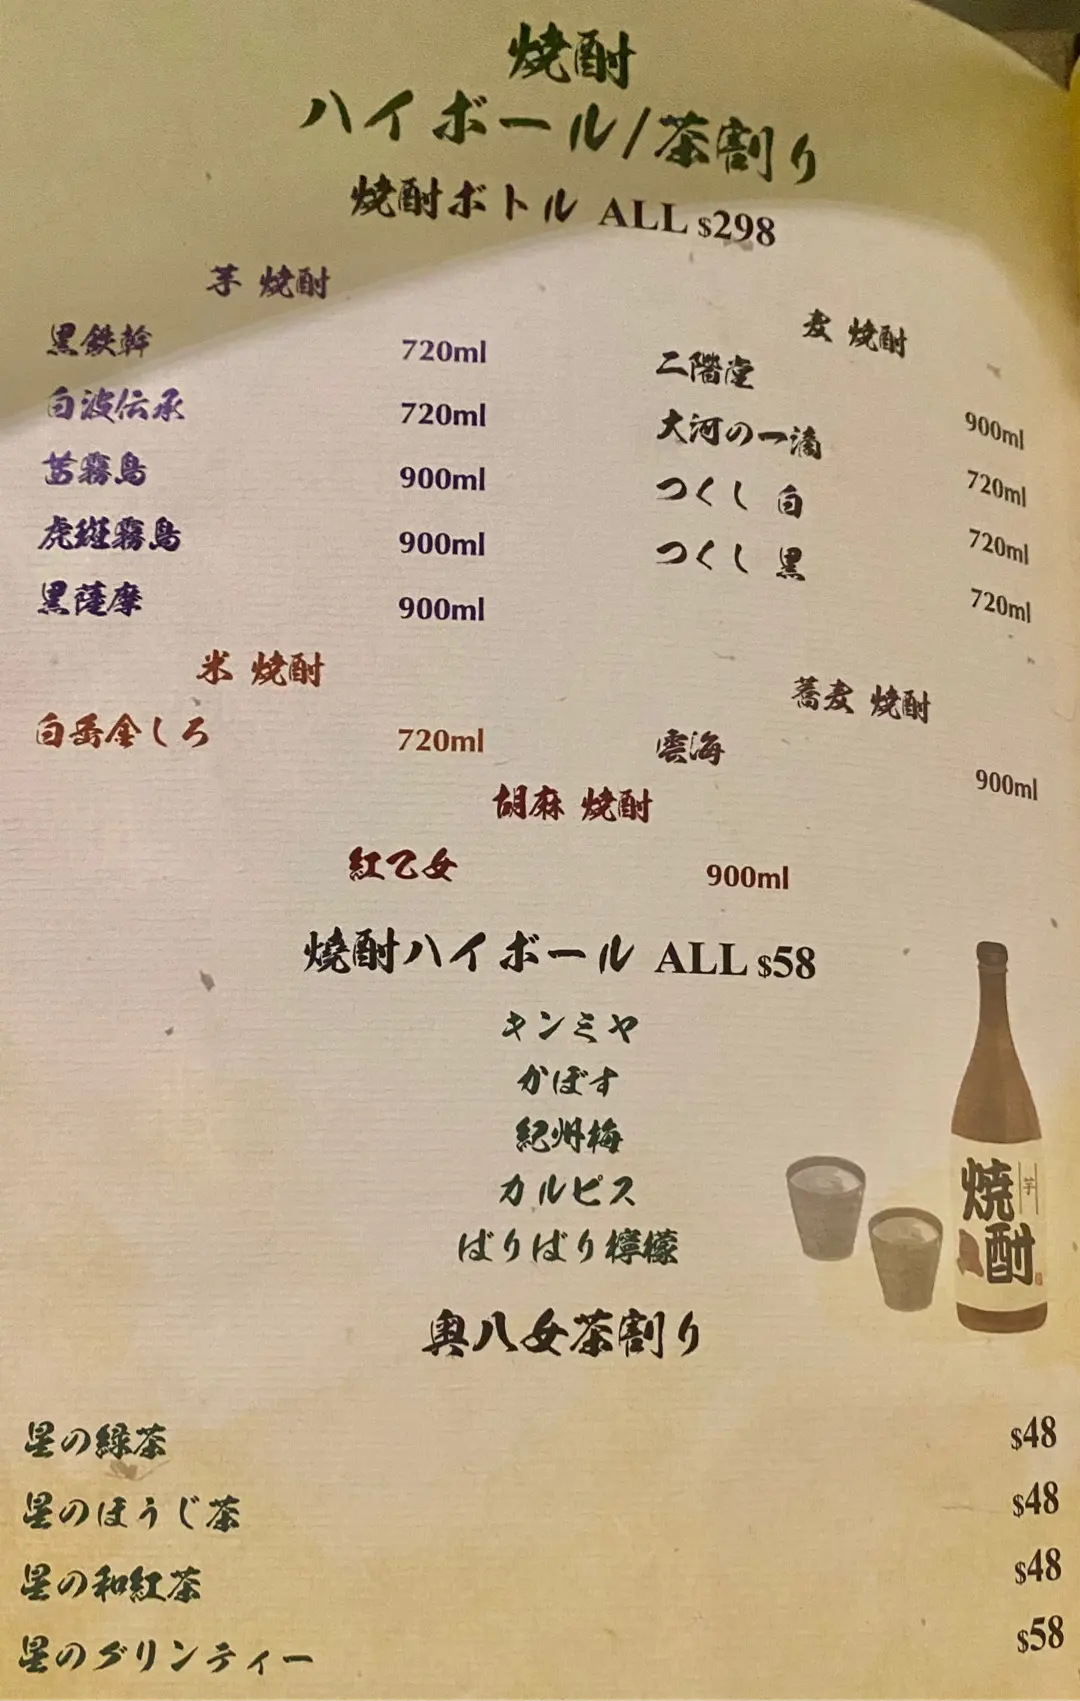 焼酎
ハイボール/茶割り
焼酎ボトル ALL $298
芋 焼酎
黒鉄幹 720ml
白波伝承 720ml
茜霧島 900ml
虎斑霧島 900ml
黒薩摩 900ml
麦 焼酎
二階堂 900ml
大河の一滴 720ml
つくし 白 720ml
つくし 黒 720ml
米 焼酎
白岳金しろ 720ml
蕎麦 焼酎
雲海 900ml
胡麻 焼酎
紅乙女 900ml
焼酎ハイボール ALL $58
キンミヤ
かぼす
紀州梅
カルピス
ばりばり檸檬
奥八女茶割り
星の緑茶 $48
星のほうじ茶 $48
星の和紅茶 $48
星のグリンティー $58
芋
焼酎